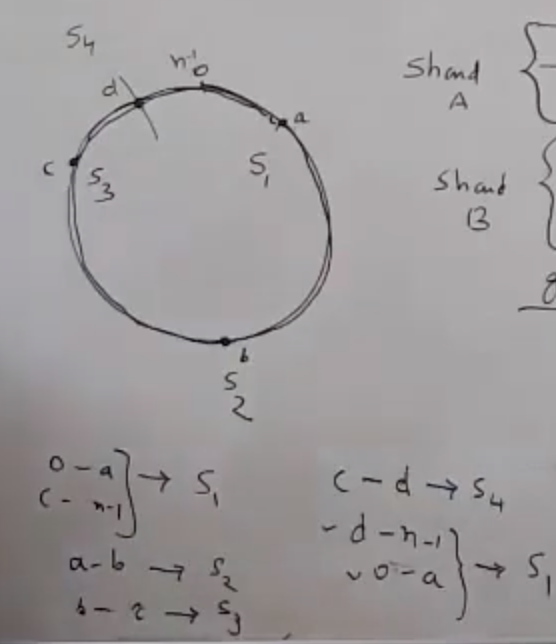 S4
n-1
0
d
a
c
S3
S1
b
S2
Shard
A
Shard
B
0 - a
c - n-1
→ S1
a-b → S2
b - c → S3
c - d → S4
d - n-1
0 - a
→ S1